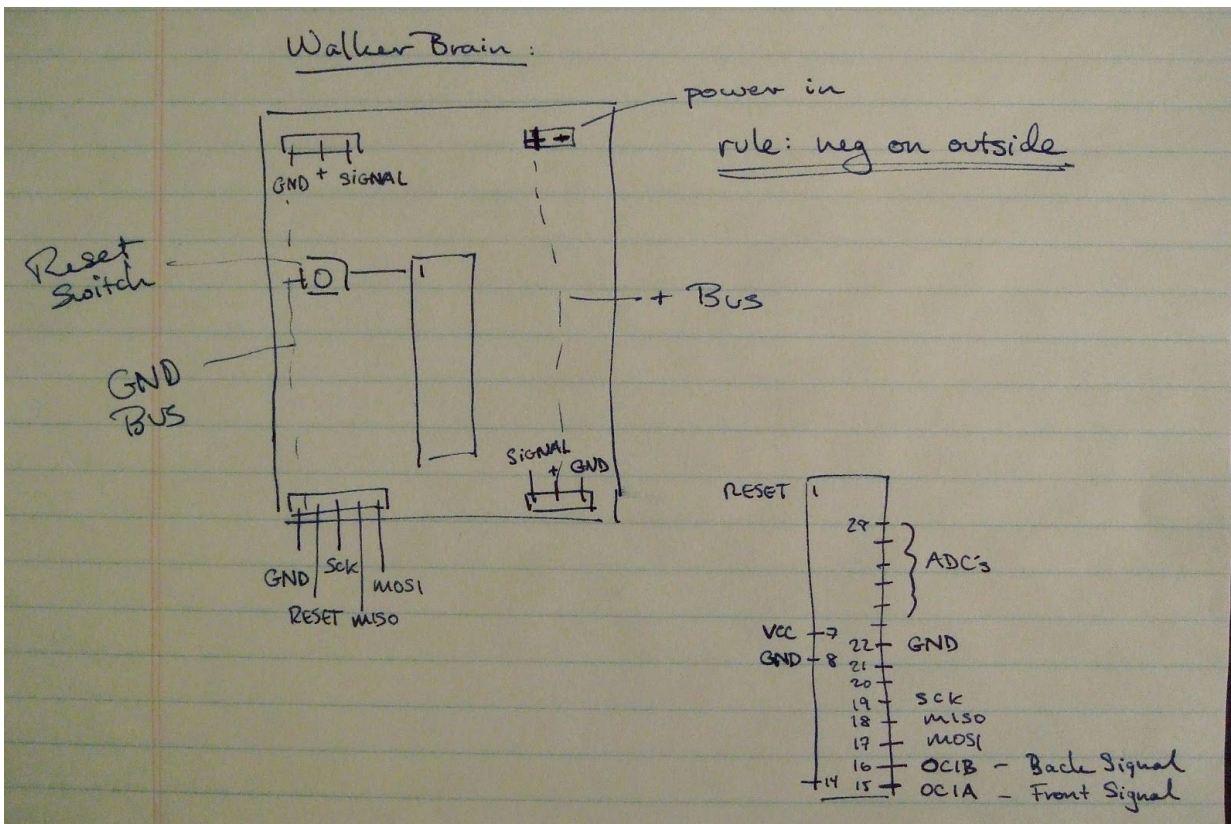 Walker Brain :
power in
+ -
rule: neg on outside
GND + SIGNAL
Reset
Switch
1
+ Bus
GND
BUS
SIGNAL
+ GND
GND SCK MOSI
RESET MISO
RESET 1
28
ADC's
VCC 7
22 GND
GND 8 21
20
19 SCK
18 MISO
17 MOSI
16 OC1B - Back Signal
14 15 OC1A - Front Signal